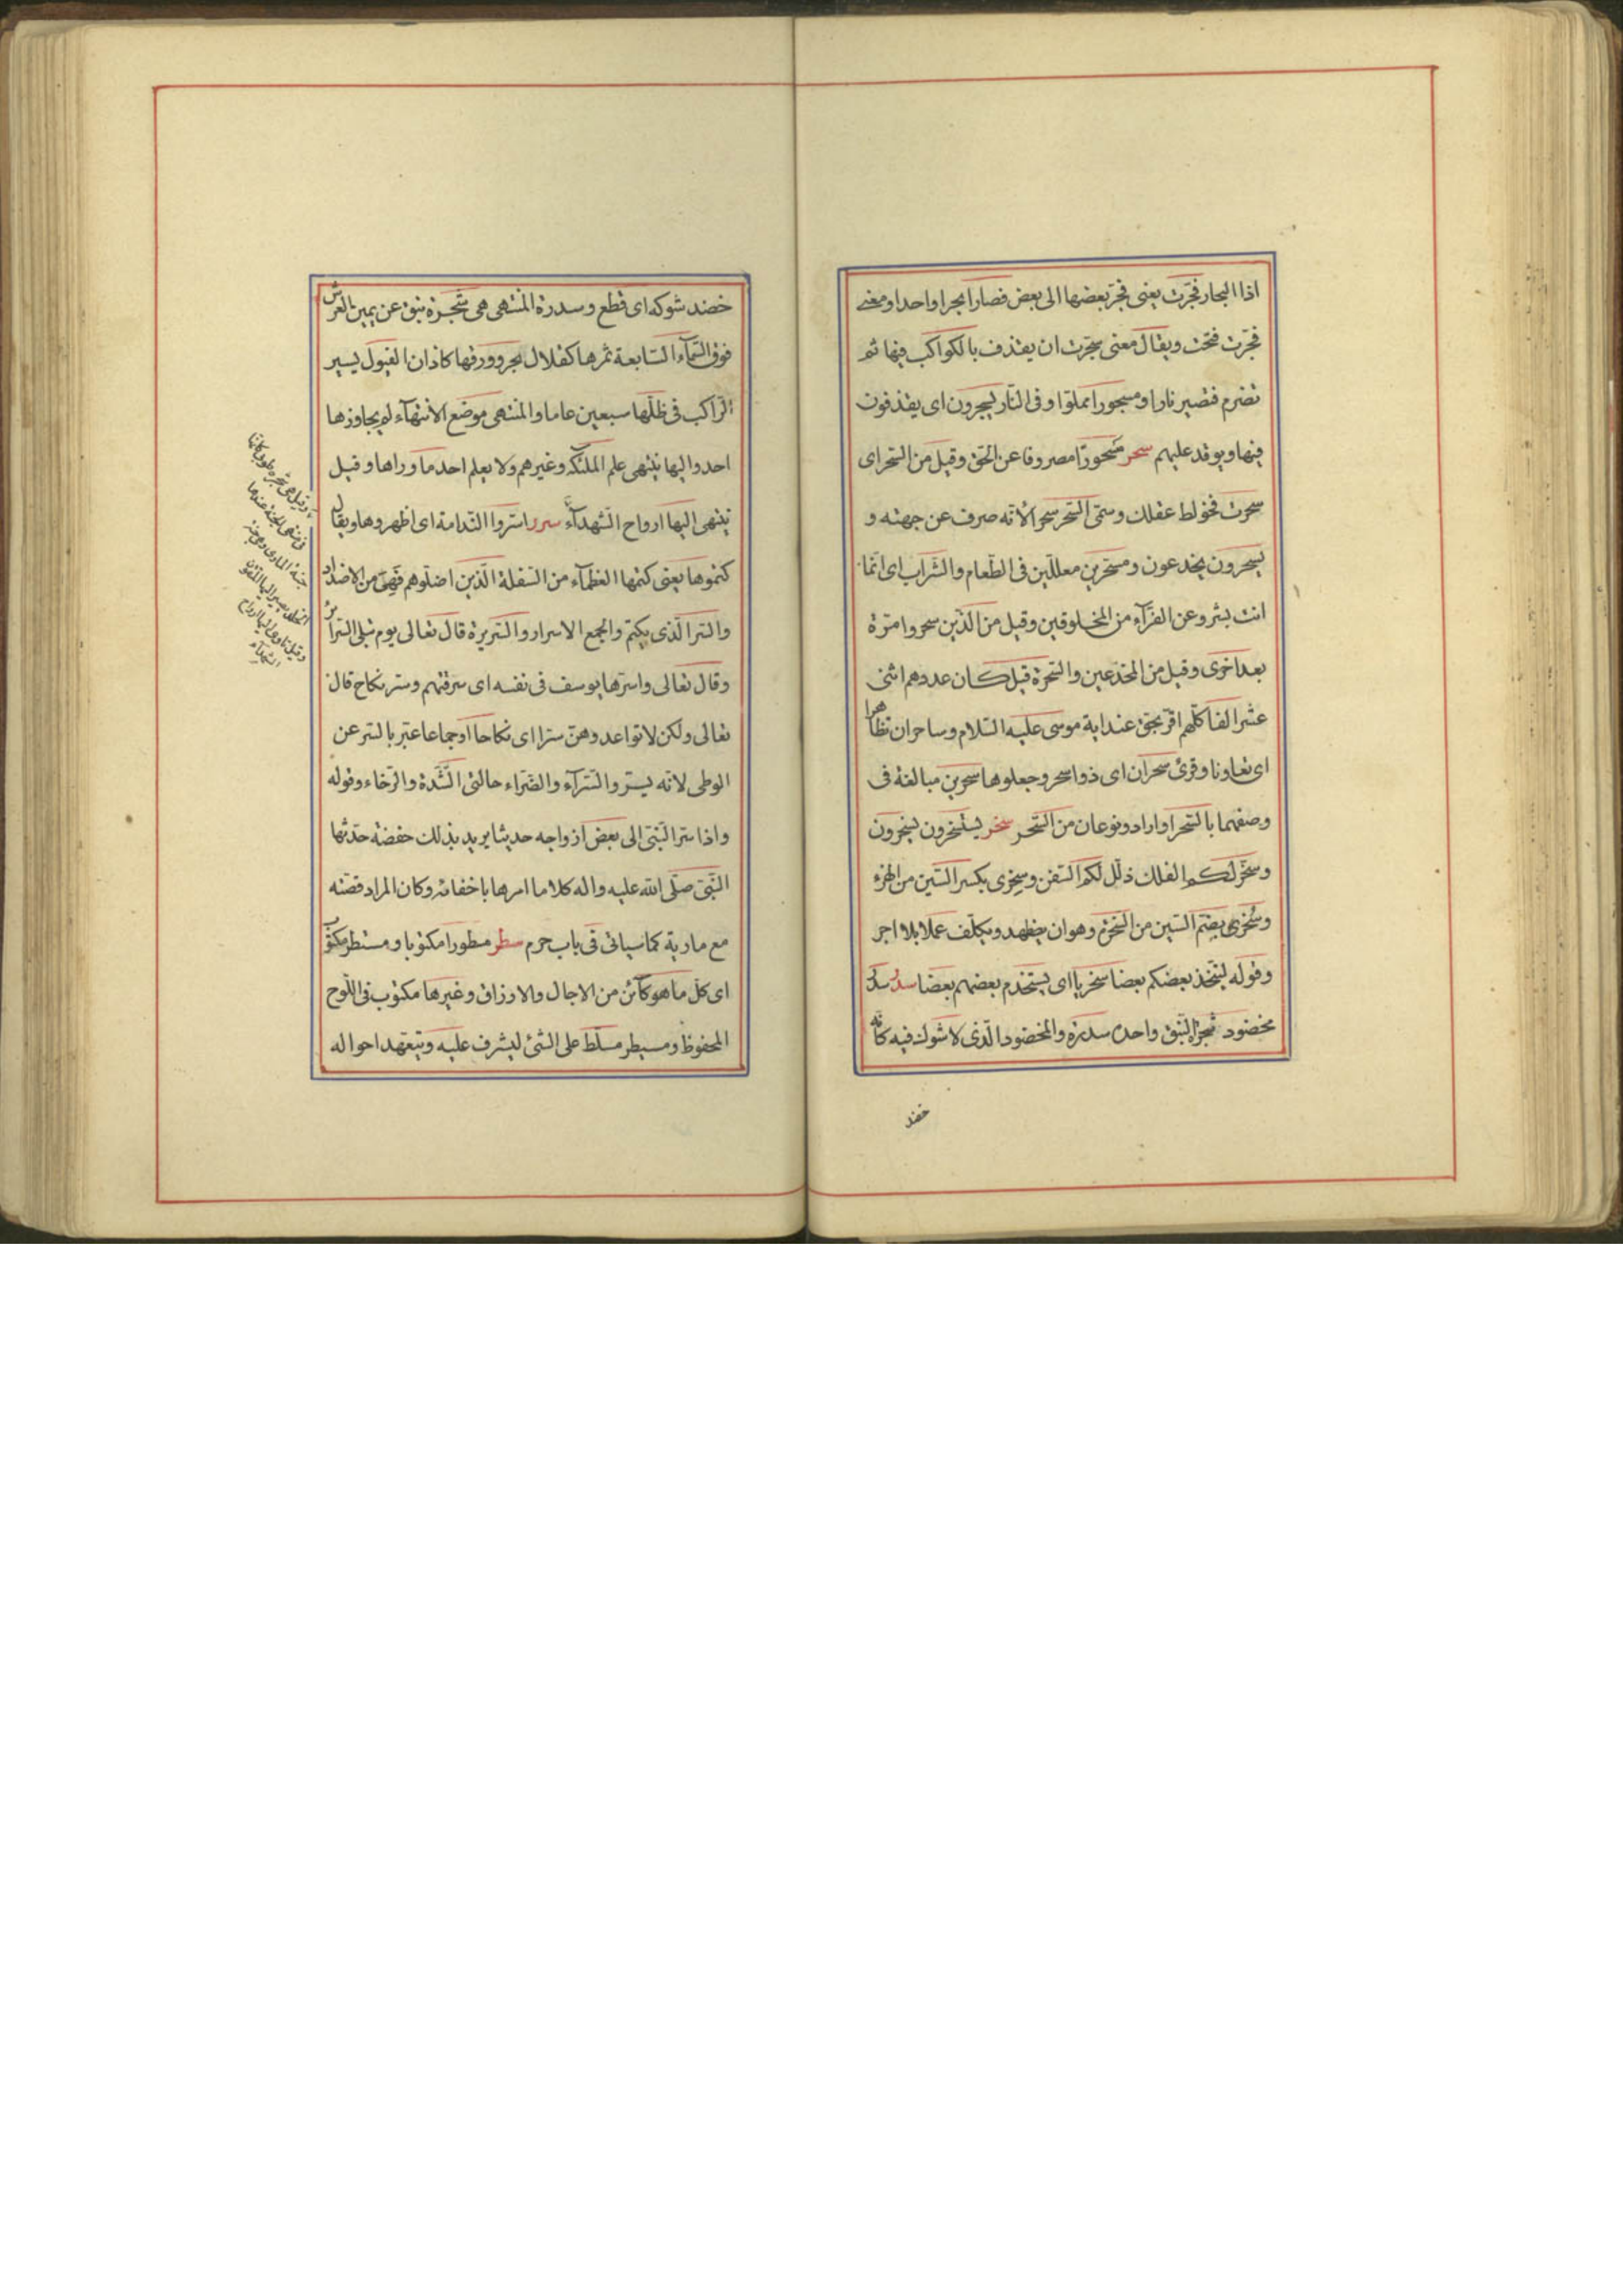 اذا البحار فجّرت يعنى فجّر بعضها الى بعض فصار ابحرا واحدا ومعنے
فجّرت فتحت ويقال معنى سجّرت ان يقذف بالكواكب فيها ثم
تضرم فتصير نارا ومسجورا مملوّا وفى النّار ليسجرون اى يقذفون
فيها ويوقد عليهم سحر مسحورا مصروفا عن الحق وقيل من السّحر اى
سحرت فخولط عقلك وسمّى السّحر سحرا لانّه صرف عن جهته و
يسحرون يخدعون ومسحّرين معللّين فى الطّعام والشّراب اى انّما
انت بشر وعن الفرّآء من المخلوقين وقيل من الّذين سحروا مرّة
بعد اخرى وقيل من المخدّعين والسّحرة قيل كان عددهم اثنى
عشر الفا كلّهم اقرّ بحق عند اية موسى عليه السّلام وساحران تظاهرا
اى تعاونا وقرئ سحران اى ذوا سحر وجعلوها سحرين مبالغة فى
وصفهما بالسّحر او اراد ونوعان من السّحر سخر يستسخرون يسخرون
وسخّر لكم الفلك ذلّل لكم السّفن وسخرى بكسر السّين من الهزء
وسخرى بضمّ السّين من السّخرة وهو ان يضطهد ويكلّف عملا بلا اجر
وقوله ليتّخذ بعضكم بعضا سخريا اى يستخدم بعضهم بعضا سدر سدر
مخضود شجرة النّبق واحده سدرة والمخضود الّذى لا شوك فيه كانّه
خضد
خضد شوكه اى قطع وسدرة المنتهى هى شجرة نبق عن يمين العرش
فوق السّمآء السّابعة ثمرها كقلال هجر وورقها كاذان الفيول يسير
الرّاكب فى ظلّها سبعين عاما والمنتهى موضع الانتهآء لم يجاوزها
احد واليها ينتهى علم الملئكة وغيرهم ولا يعلم احد ما وراها وقيل
ينتهى اليها ارواح الشّهدآء سرر اسرّوا النّدامة اى اظهروها ويقال
كتموها يعنى كتمها العظمآء من السّفلة الّذين اضلّوهم فهى من الاضداد
والسّر الّذى يكتم والجمع الاسرار والسّريرة قال تعالى يوم تبلى السّرائر
وقال تعالى واسرّها يوسف فى نفسه اى سرقتهم وسرّ نكاح قال
تعالى ولكن لا تواعدوهنّ سرّا اى نكاحا او جماعا عبّر بالسّر عن
الوطى لانّه يسرّ والسّرآء والضّراء حالتى الشّدة والرّخاء وقوله
واذا سرّ النّبىّ الى بعض ازواجه حديثا يريد بذلك حفضة حدّثها
النّبىّ صلّى الله عليه واله كلاما امرها باخفائه وكان المراد قصّته
مع مارية كما سياتى فى باب حرم سطر مسطورا مكتوبا ومستطر مكتوب
اى كلّ ما هو كآئن من الاجال والارزاق وغيرها مكتوب فى اللّوح
المحفوظ ومسيطر مسلّط على الشّئ ليشرف عليه ويتعهّد احواله
وقيل هى شجرة طوبى كانّها
فى منتهى الجنّة عندها
جنّة الماوى وهى جنّة
الخلد يصير اليها المتّقون
وقيل تاوى اليها ارواح
الشّهدآء